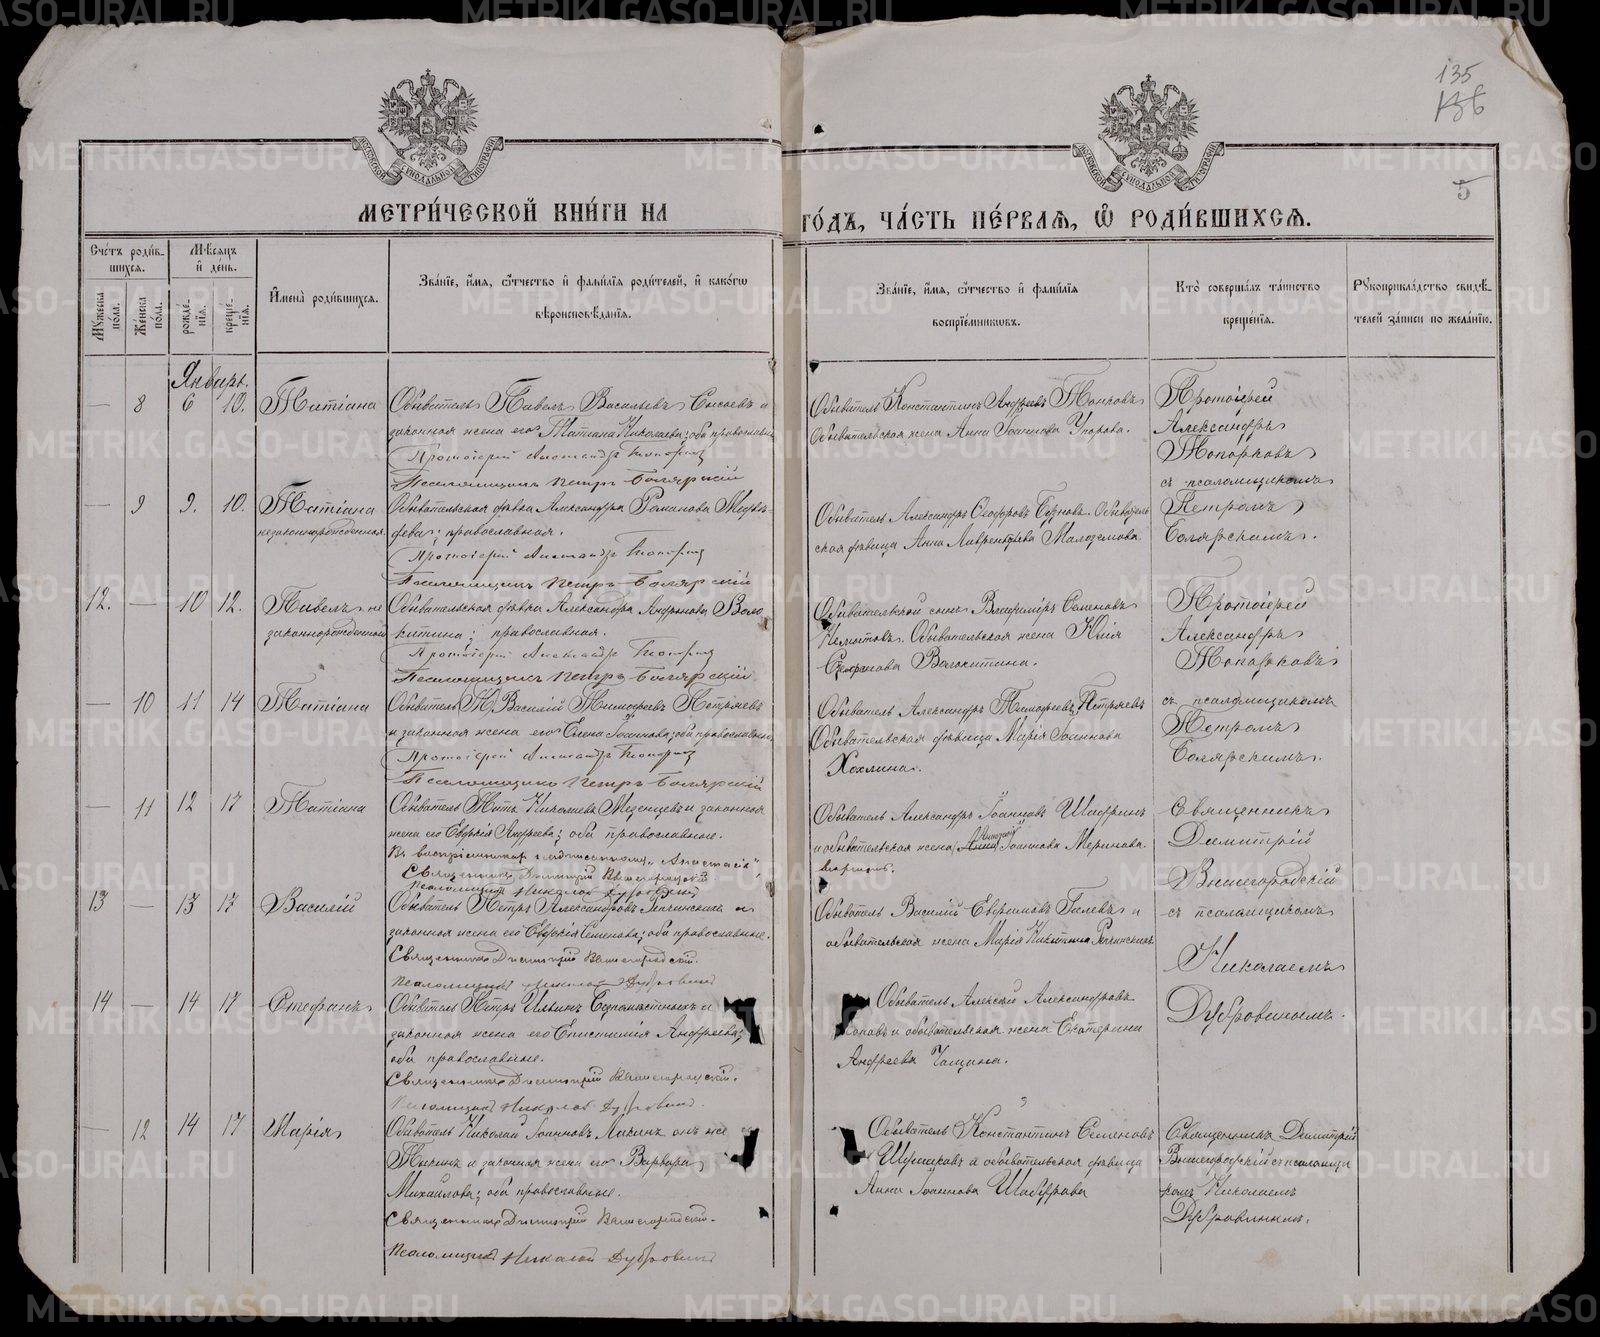 135
136
5
МОСКОВСКОЙ СѴНОДАЛЬНОЙ ТИПОГРАФІИ
МОСКОВСКОЙ СѴНОДАЛЬНОЙ ТИПОГРАФІИ
МЕТРИ́ЧЕСКОЙ КНИ́ГИ НА ГО́ДЪ, ЧА́СТЬ ПЕ́РВАѦ, Ѿ РОДИ́ВШИХСѦ.
Сче́тъ роди́в-
шихсѧ.
Мѣсѧцъ
и҆ де́нь.
Мꙋжеска
по́ла.
Же́нска
по́ла.
рожде́-
нїѧ.
креще́-
нїѧ.
И҆мена̀ роди́вшихсѧ.
Зва́нїе, и҆́мѧ, ѻ҆́тчество и҆ фами́лїѧ роди́телей, и҆ како́гѡ
вѣроисповѣ́данїѧ.
Зва́нїе, и҆́мѧ, ѻ҆́тчество и҆ фами́лїѧ
воспрїе́мникѡвъ.
Кто̀ соверша́лъ та́инство
креще́нїѧ.
Рꙋкоприкла́дство свидѣ́-
телей за́писи по жела́нїю.
Январь.
— 8 6 10. Татіана
Обыватель Павелъ Васильевъ Сысоевъ и
законная жена его Татіана Николаева; оба православные
Протоіерей Александръ Топорков
Псаломщикъ Петръ Боярскій
Обыватель Константинъ Андреевъ Топковъ
Обывательская жена Анна Іоаннова Упорова.
Протоіерей
Александръ
Топорковъ
съ псаломщикомъ
Петромъ
Боярскимъ.
— 9 9. 10. Татіана
незаконнорожденная
Обывательская дѣвка Александра Романова
православная.
Протоіерей Александръ Топорков
Псаломщикъ Петръ Боярскій
Обыватель Александръ Ѳеодоровъ Обыватель
ская дѣвица Анна Лаврентьева Малоземова.
12. — 10 12. Павелъ не
законнорожденный
Обывательская дѣвка Александра Андреева Воло
китина; православная.
Протоіерей Александръ Топорков
Псаломщикъ Петръ Боярскій
Обывательскій сынъ Владиміръ Семеновъ
Обывательская жена Юлія
Стефанова Волокитина.
Протоіерей
Александръ
Топорковъ
съ псаломщикомъ
Петромъ
Боярскимъ.
— 10 11 14 Татіана
Обыватель Василій Тимофеевъ Петряевъ
и законная жена его Елена Іоаннова; оба православные
Протоіерей Александръ Топорков
Псаломщикъ Петръ Боярскій
Обыватель Александръ Тимофеевъ Петряевъ
Обывательская дѣвица Марія Іоаннова
Хохлина.
— 11 12 17 Татіана
Обыватель Титъ Николаевъ Мезенцевъ и законная
жена его Евдокія Андреева; оба православные.
Въ воспріемникахъ надписанному „Анастасія“
Священникъ Димитрій Вышегородскій
Псаломщикъ Николай Дубровинъ
Обыватель Александръ Іоанновъ Шадринъ
и обывательская жена Анна Іоаннова Меринова.
Священникъ
Димитрій
Вышегородскій
съ псаломщикомъ
Николаемъ
Дубровинымъ.
13 — 13 17 Василій
Обыватель Петръ Александровъ и
законная жена его Евдокія Семенова; оба православные.
Священникъ Димитрій Вышегородскій.
Псаломщикъ Николай Дубровинъ
Обыватель Василій Ефремовъ Галевъ и
обывательская жена Марія Никитина
14 — 14 17 Стефанъ
Обыватель Петръ Ильинъ и
законная жена его Епистимія Андреева;
оба православные.
Священникъ Димитрій Вышегородскій.
Псаломщикъ Николай Дубровинъ.
Обыватель Алексѣй Александровъ
и обывательская жена Екатерина
Андреева Чащина.
— 12 14 17 Марія
Обыватель Николай Іоанновъ онъ же
и законная жена его Варвара
Михайлова; оба православные.
Священникъ Димитрій Вышегородскій.
Псаломщикъ Николай Дубровинъ
Обыватель Константинъ Семеновъ
и обывательская дѣвица
Анна Іоаннова
Священникъ Димитрій
Вышегородскій съ псаломщи
комъ Николаемъ
Дубровинымъ.
METRIKI.GASO-URAL.RU